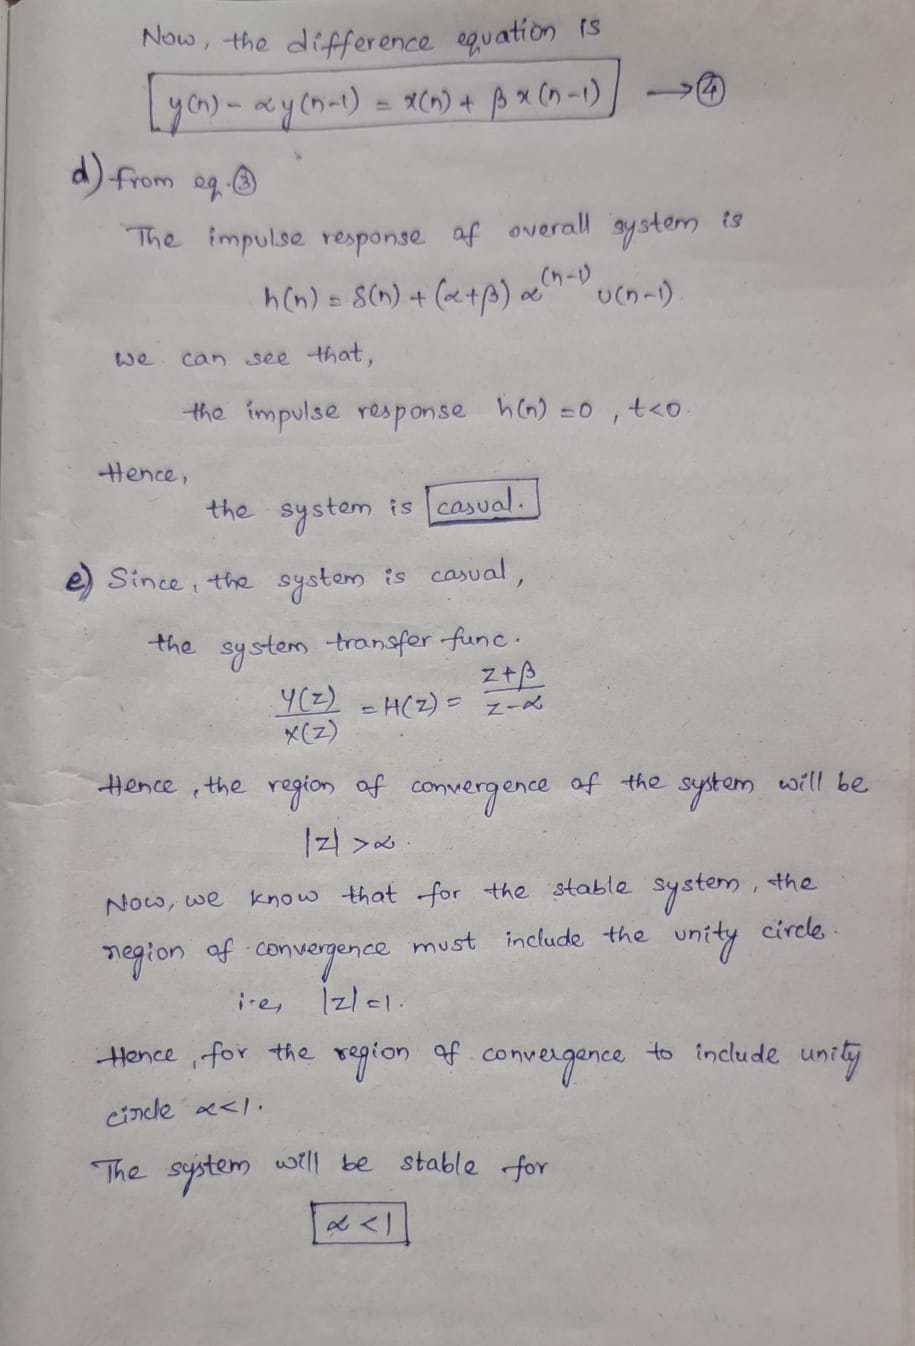 Now, the difference equation is
y(n) - αy(n-1) = x(n) + βx(n-1) → ④
d) from eq.③
The impulse response of overall system is
h(n) = δ(n) + (α+β) α^(n-1) u(n-1)
we can see that,
the impulse response h(n) = 0 , t<0.
Hence,
the system is casual.
e) Since, the system is casual,
the system transfer func.
Y(z)/X(z) = H(z) = z+β/z-α
Hence, the region of convergence of the system will be
|z| > α.
Now, we know that for the stable system, the
region of convergence must include the unity circle.
i.e, |z| = 1.
Hence, for the region of convergence to include unity
circle α<1.
The system will be stable for
α < 1